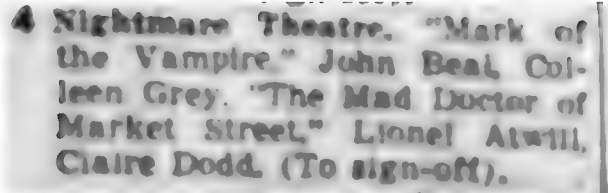 4 Nightmare Theatre. "Mark of
the Vampire" John Beal, Col-
leen Grey. "The Mad Doctor of
Market Street," Lionel Atwill,
Claire Dodd. (To sign-off).